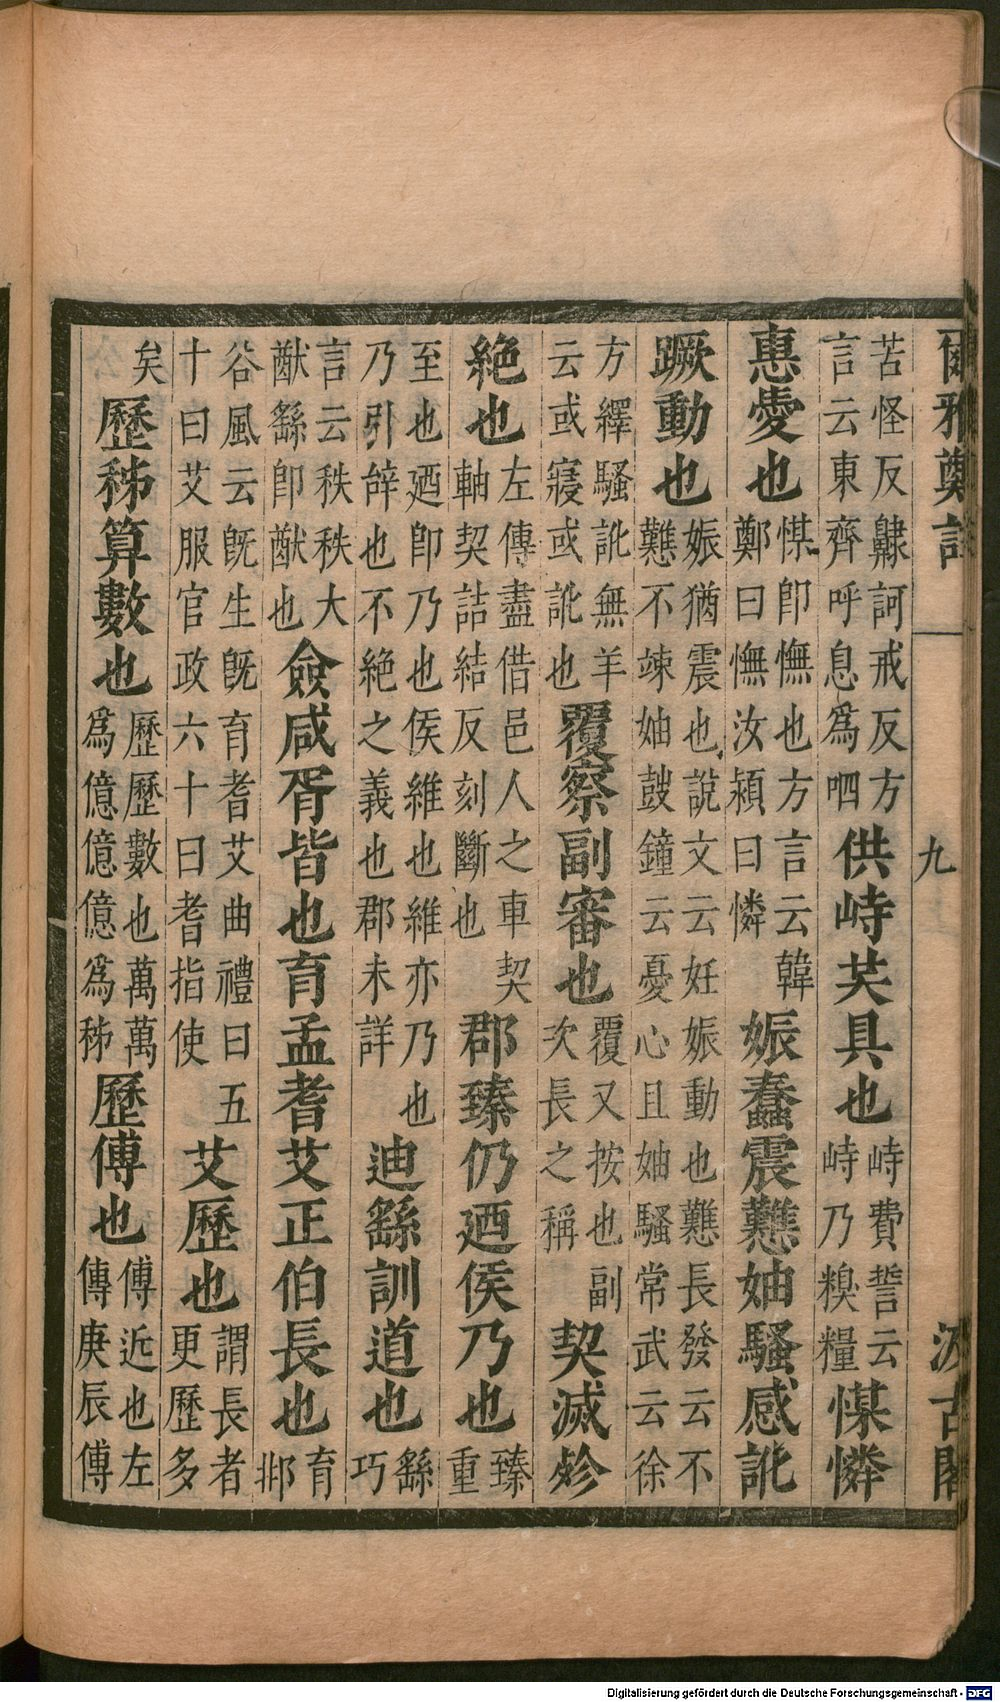 爾雅鄭註　九　汲古閣
苦怪反齂訶戒反方言云東齊呼息爲呬供峙共具也峙費誓云峙乃糗糧㥈憐
惠愛也㥈即憮也方言云韓鄭曰憮汝潁曰憐娠蠢震戁妯騷感訛
蹶動也娠猶震也說文云妊娠動也戁長發云不戁不竦妯鼓鐘云憂心且妯騷常武云徐
方繹騷訛無羊云或寢或訛也覆察副審也覆又按也副次長之稱契滅殄
絕也左傳盡借邑人之車契軸契詰結反刻斷也郡臻仍迺侯乃也臻重
至也迺即乃也侯維也維亦乃也乃引辝也不絕之義也郡未詳迪繇訓道也繇巧
言云秩秩大猷繇即猷也僉咸胥皆也育孟耆艾正伯長也育邶
谷風云既生既育耆艾曲禮曰五十曰艾服官政六十曰耆指使艾歷也謂長者更歷多
矣歷秭算數也歷歷數也萬萬爲億億億爲秭歷傅也傅近也左傳庚辰傅
Digitalisierung gefördert durch die Deutsche Forschungsgemeinschaft - DFG